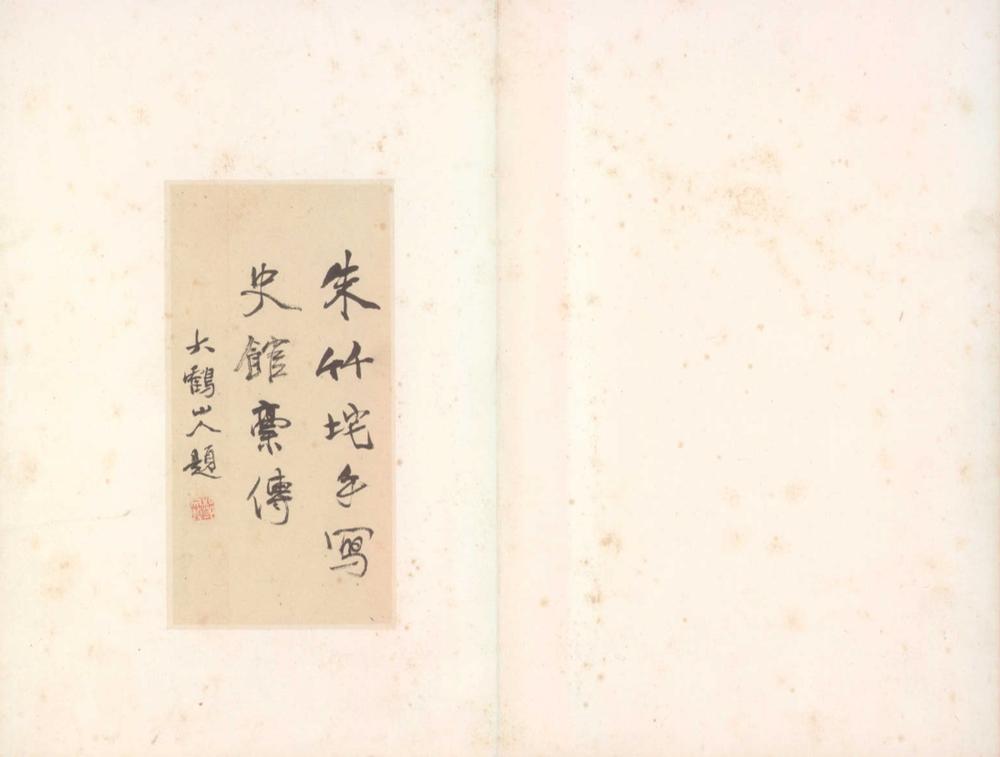 朱竹垞手寫
史館稾傳
大鶴山人題